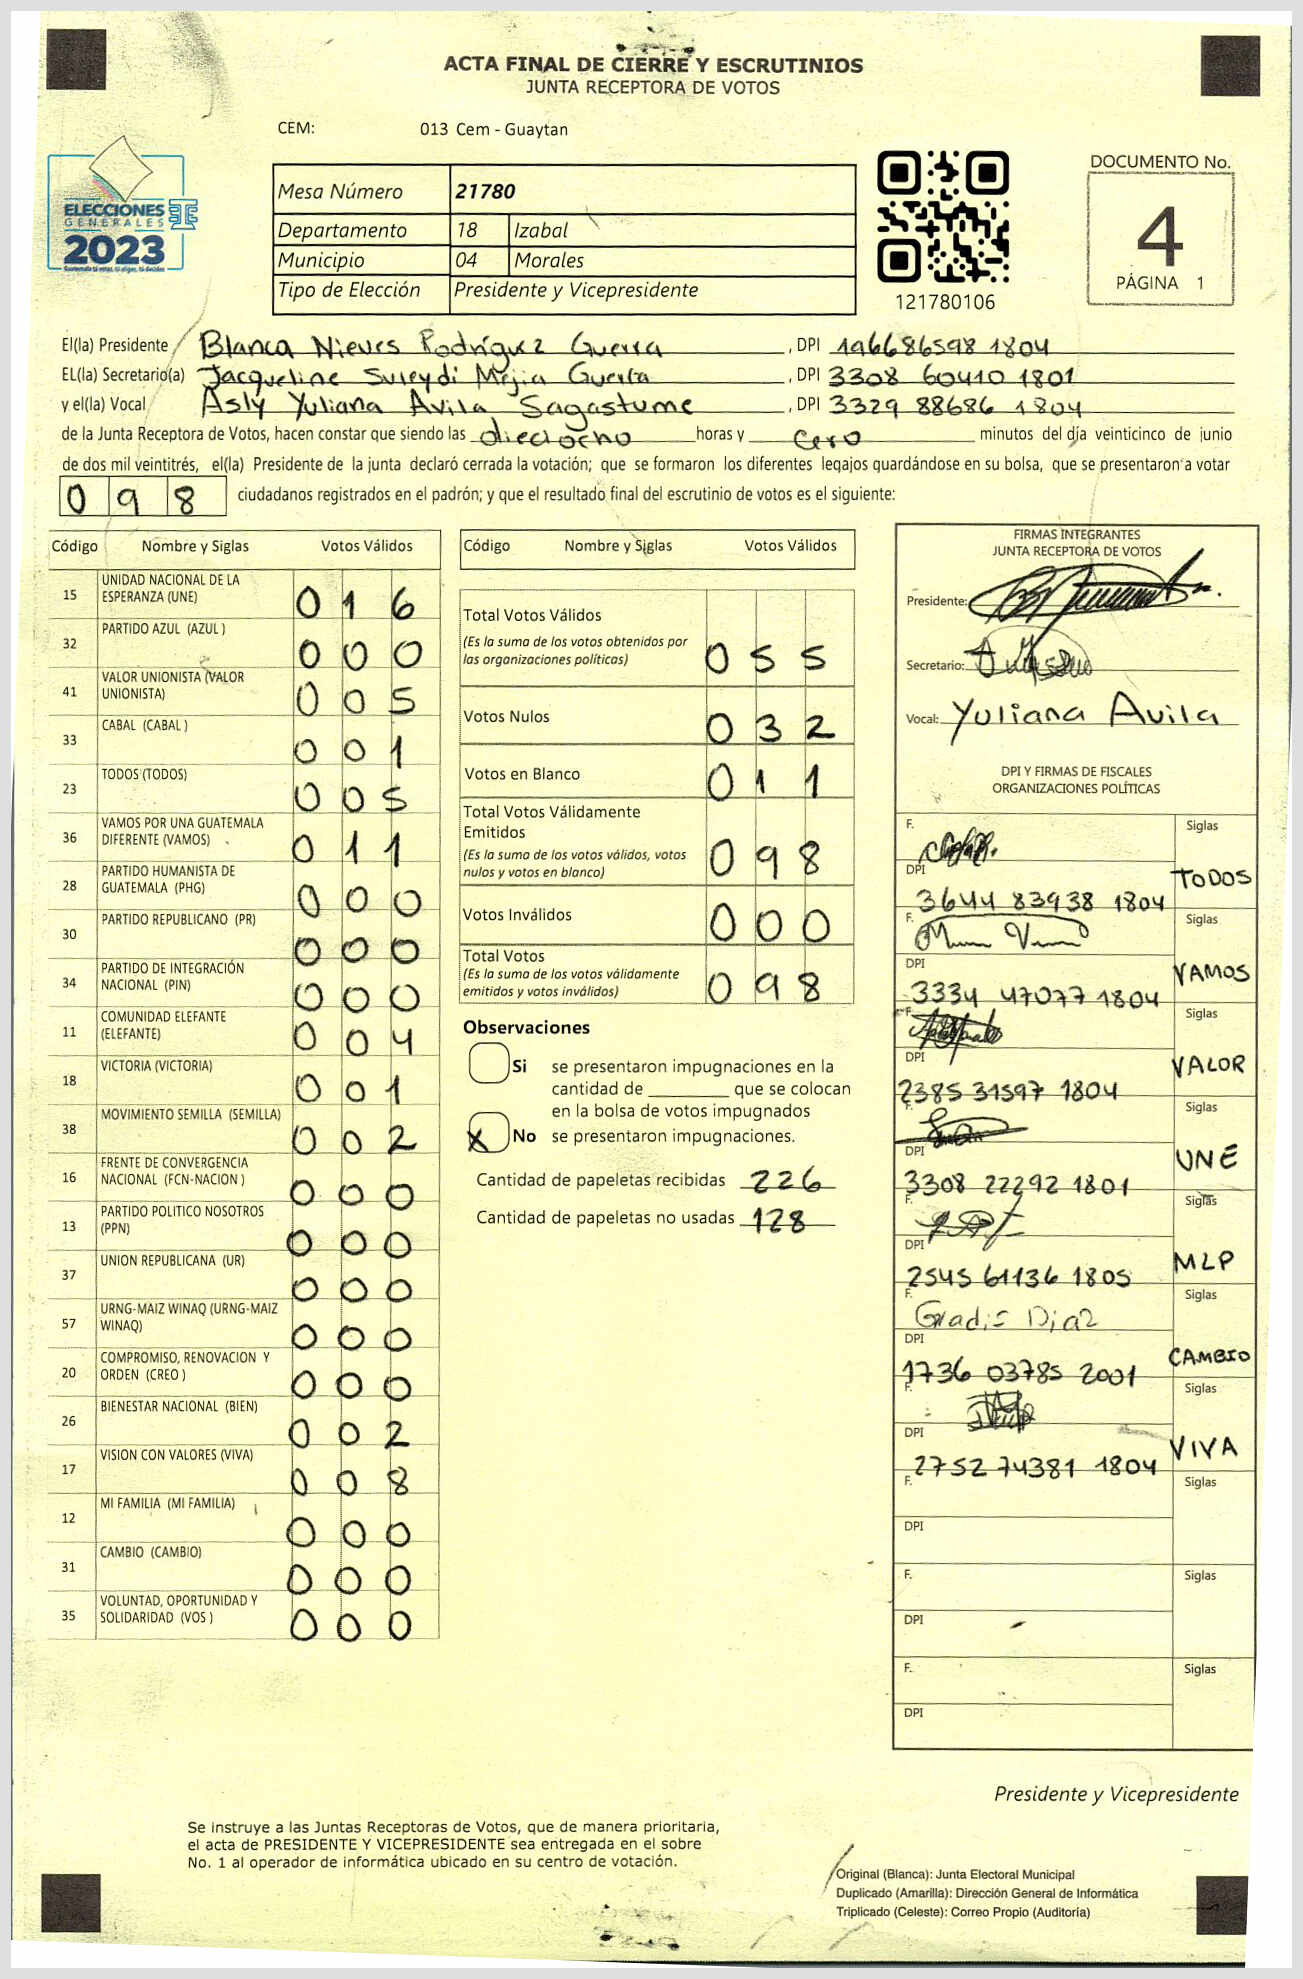 ACTA FINAL DE CIERRE Y ESCRUTINIOS
JUNTA RECEPTORA DE VOTOS
CEM: 013 Cem - Guaytan
ELECCIONES
GENERALES
2023
Guatemala tú votas, tú eliges, tú decides
Mesa Número 21780
Departamento 18 Izabal
Municipio 04 Morales
Tipo de Elección Presidente y Vicepresidente
121780106
DOCUMENTO No.
4
PÁGINA 1
El(la) Presidente Blanca Nieves Rodríguez Guerra , DPI 196686598 1804
EL(la) Secretario(a) Jacqueline Suleydi Mejia Guerra , DPI 3308 60410 1801
y el(la) Vocal Asly Yuliana Avila Sagastume , DPI 3329 88686 1804
de la Junta Receptora de Votos, hacen constar que siendo las dieciocho horas y cero minutos del día veinticinco de junio
de dos mil veintitrés, el(la) Presidente de la junta declaró cerrada la votación; que se formaron los diferentes legajos guardándose en su bolsa, que se presentaron a votar
098 ciudadanos registrados en el padrón; y que el resultado final del escrutinio de votos es el siguiente:
Código Nombre y Siglas Votos Válidos
15 UNIDAD NACIONAL DE LA
ESPERANZA (UNE) 016
32 PARTIDO AZUL (AZUL ) 000
41 VALOR UNIONISTA (VALOR
UNIONISTA) 005
33 CABAL (CABAL ) 001
23 TODOS (TODOS) 005
36 VAMOS POR UNA GUATEMALA
DIFERENTE (VAMOS) 011
28 PARTIDO HUMANISTA DE
GUATEMALA (PHG) 000
30 PARTIDO REPUBLICANO (PR) 000
34 PARTIDO DE INTEGRACIÓN
NACIONAL (PIN) 000
11 COMUNIDAD ELEFANTE
(ELEFANTE) 004
18 VICTORIA (VICTORIA) 001
38 MOVIMIENTO SEMILLA (SEMILLA) 002
16 FRENTE DE CONVERGENCIA
NACIONAL (FCN-NACION ) 000
13 PARTIDO POLITICO NOSOTROS
(PPN) 000
37 UNION REPUBLICANA (UR) 000
57 URNG-MAIZ WINAQ (URNG-MAIZ
WINAQ) 000
20 COMPROMISO, RENOVACION Y
ORDEN (CREO ) 000
26 BIENESTAR NACIONAL (BIEN) 002
17 VISION CON VALORES (VIVA) 008
12 MI FAMILIA (MI FAMILIA) 000
31 CAMBIO (CAMBIO) 000
35 VOLUNTAD, OPORTUNIDAD Y
SOLIDARIDAD (VOS ) 000
Código Nombre y Siglas Votos Válidos
Total Votos Válidos
(Es la suma de los votos obtenidos por
las organizaciones políticas) 055
Votos Nulos 032
Votos en Blanco 011
Total Votos Válidamente
Emitidos
(Es la suma de los votos válidos, votos
nulos y votos en blanco) 098
Votos Inválidos 000
Total Votos
(Es la suma de los votos válidamente
emitidos y votos inválidos) 098
Observaciones
Si se presentaron impugnaciones en la
cantidad de ________ que se colocan
en la bolsa de votos impugnados
X No se presentaron impugnaciones.
Cantidad de papeletas recibidas 226
Cantidad de papeletas no usadas 128
FIRMAS INTEGRANTES
JUNTA RECEPTORA DE VOTOS
Presidente:
Secretario:
Vocal: Yuliana Avila
DPI Y FIRMAS DE FISCALES
ORGANIZACIONES POLÍTICAS
F. Siglas
DPI 3644 83938 1804 TODOS
F. Siglas
DPI 3334 47077 1804 VAMOS
F. Siglas
DPI 2385 31597 1804 VALOR
F. Siglas
DPI 3308 22292 1801 UNE
F. Siglas
DPI 2545 61136 1805 MLP
F. Gradis Diaz Siglas
DPI 1736 03785 2001 CAMBIO
F. Siglas
DPI 2752 74381 1804 VIVA
F. Siglas
DPI
F. Siglas
DPI
F. Siglas
DPI
Presidente y Vicepresidente
Se instruye a las Juntas Receptoras de Votos, que de manera prioritaria,
el acta de PRESIDENTE Y VICEPRESIDENTE sea entregada en el sobre
No. 1 al operador de informática ubicado en su centro de votación.
Original (Blanca): Junta Electoral Municipal
Duplicado (Amarilla): Dirección General de Informática
Triplicado (Celeste): Correo Propio (Auditoría)